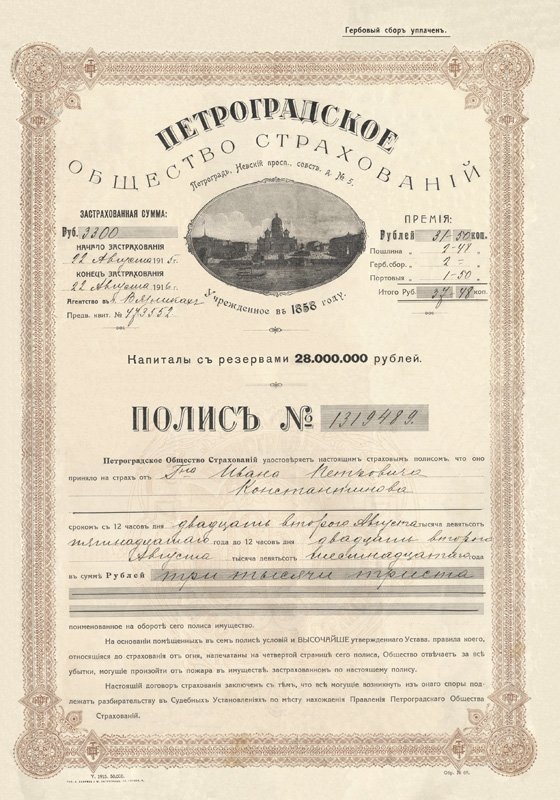 Гербовый сборъ уплаченъ.
ПЕТРОГРАДСКОЕ
ОБЩЕСТВО СТРАХОВАНІЙ
Петроградъ, Невскій просп., собств. д. № 5.
ЗАСТРАХОВАННАЯ СУММА:
Руб. 3300
НАЧАЛО ЗАСТРАХОВАНІЯ
22 Августа 1915 г.
КОНЕЦЪ ЗАСТРАХОВАНІЯ
22 Августа 1916 г.
Агентство въ г.
Предв. квит. № 473552
ПРЕМІЯ:
Рублей 31-50 коп.
Пошлина 2-48 „
Герб. сбор. „ 2 = „
Портовыя 1-50 „
Итого Руб. 37-48 коп.
Учрежденное въ 1858 году.
Капиталы съ резервами 28.000.000 рублей.
ПОЛИСЪ № 1319489.
Петроградское Общество Страхованій удостовѣряетъ настоящимъ страховымъ полисомъ, что оно
приняло на страхъ отъ Г-на Ивана Петровича
Константинова
срокомъ съ 12 часовъ дня двадцать второго Августа тысяча девятьсотъ
пятнадцатаго года до 12 часовъ дня двадцать второго
Августа тысяча девятьсотъ шестнадцатаго года
въ суммѣ Рублей три тысячи триста
поименованное на оборотѣ сего полиса имущество.
На основаніи помѣщенныхъ въ семъ полисѣ условій и ВЫСОЧАЙШЕ утвержденнаго Устава, правила коего,
относящіяся до страхованія отъ огня, напечатаны на четвертой страницѣ сего полиса, Общество отвѣчаетъ за всѣ
убытки, могущіе произойти отъ пожара въ имуществѣ, застрахованномъ по настоящему полису.
Настоящій договоръ страхованія заключенъ съ тѣмъ, что всѣ могущіе возникнуть изъ онаго споры под-
лежатъ разбирательству въ Судебныхъ Установленіяхъ по мѣсту нахожденія Правленія Петроградскаго Общества
Страхованій.
V. 1915. 50.000.
Обр. №